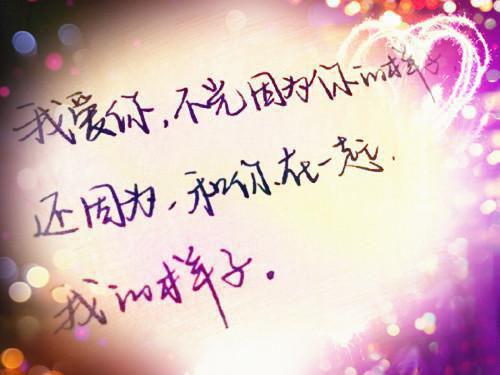 我爱你，不光因为你的样子
还因为，和你在一起.
我的样子。